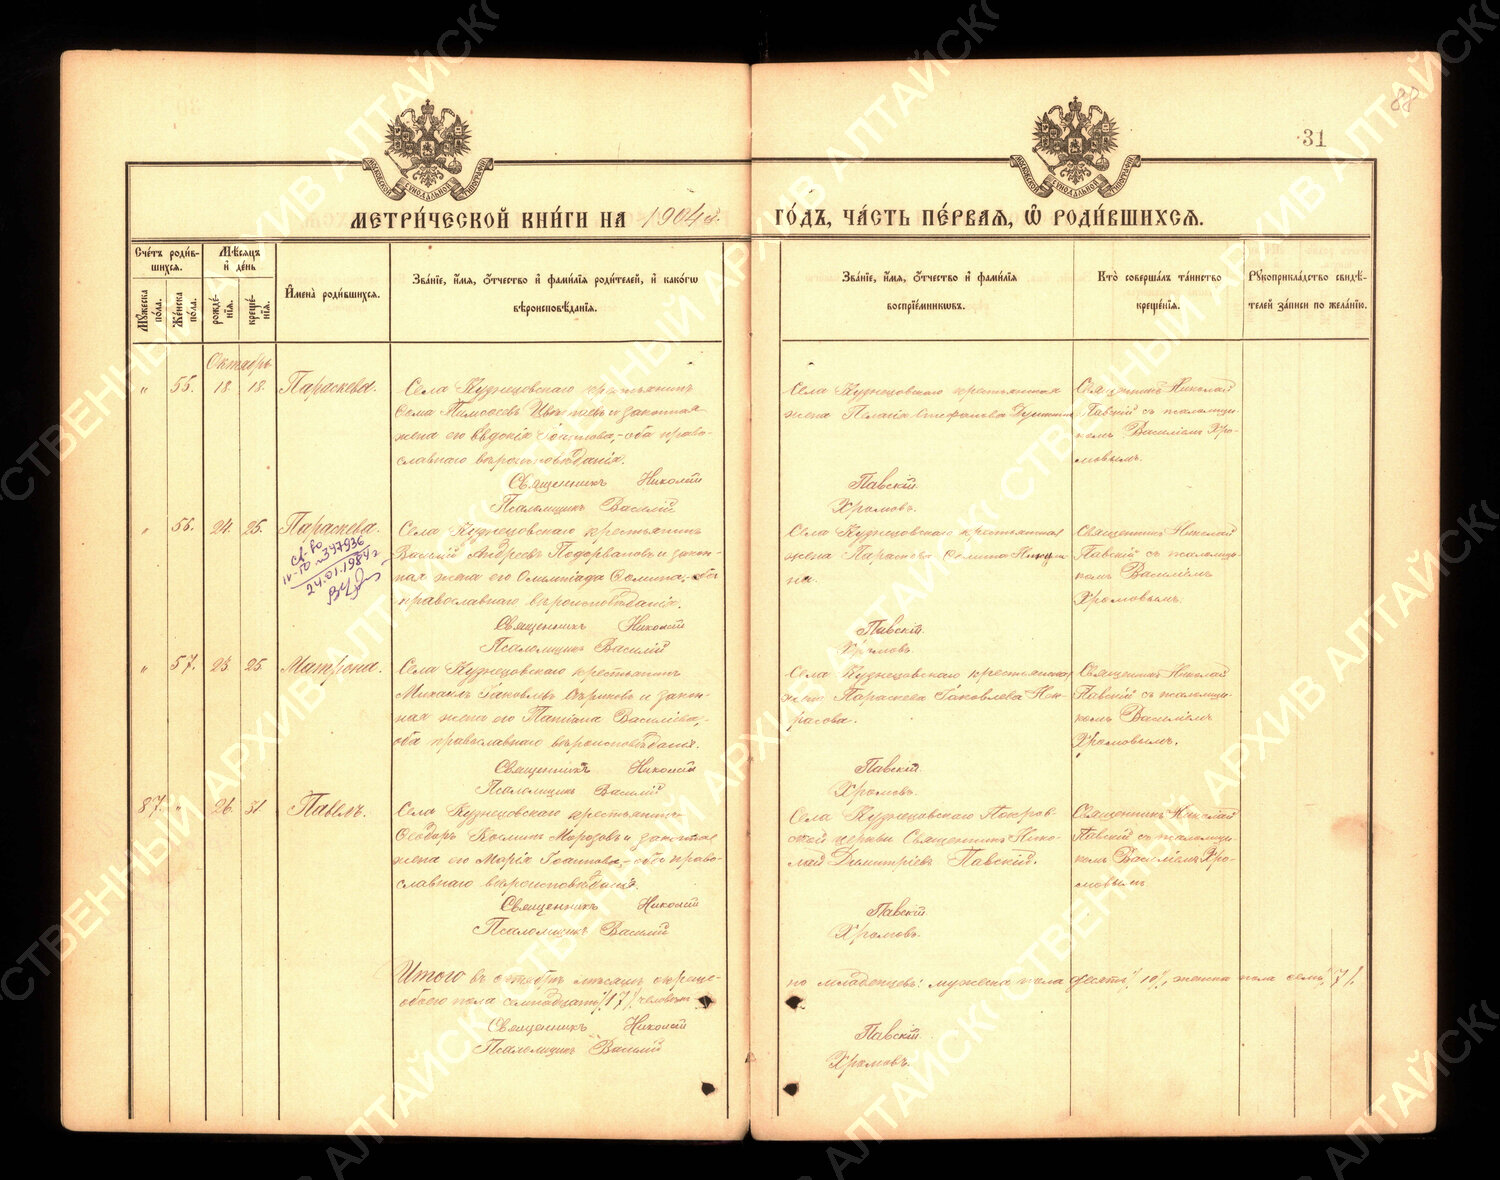 88
31
МОСКОВСКОЙ СѴНОДАЛЬНОЙ ТИПОГРАФІИ
МОСКОВСКОЙ СѴНОДАЛЬНОЙ ТИПОГРАФІИ
МЕТРИ́ЧЕСКОЙ КНИ́ГИ НА 1904 й. ГО́ДЪ, ЧА́СТЬ ПЕ́РВАЯ, Ѿ РОДИ́ВШИХСЯ.
Сче́тъ роди́в-
шихся.
Мѣ́сяцъ
и҆ де́нь
Мꙋ́жеска
по́ла.
Же́нска
по́ла.
рожде́-
нїя.
креще́-
нїя.
И҆мена̀ роди́вшихся.
Зва́нїе, и҆́мя, ѻ҆́тчество и҆ фами́лїя роди́телей, и҆ како́гѡ
вѣроисповѣ́данїя.
Зва́нїе, и҆́мя, ѻ҆́тчество и҆ фами́лїя
воспрїе́мникѡвъ.
Кто̀ соверша́лъ та́инство
креще́нїя.
Рꙋкоприкла́дство свидѣ́-
телей за́писи по жела́нїю.
Октябрь
" 55. 18. 18. Параскева.
Села Кузнецовскаго крестьянинъ
Сема Тимофеевъ и законная
жена его Евдокія Іоаннова, – оба право-
славнаго вѣроисповѣданія.
Священникъ Николай
Псаломщикъ Василій
Села Кузнецовскаго крестьянская
жена Пелагія Стефанова
Павскій.
Хромовъ.
Священникъ Николай
Павскій съ псаломщи-
комъ Василіемъ Хро-
мовымъ.
" 56. 24. 25. Параскева.
св-во
II-ТО – 397936
24.01.1984 г
Села Кузнецовскаго крестьянинъ
Василій Андреевъ Подорвановъ и закон-
ная жена его Олимпіада Ѳомина, – оба
православнаго вѣроисповѣданія.
Священникъ Николай
Псаломщикъ Василій
Села Кузнецовскаго крестьянская
жена Параскева Ѳомина
на.
Павскій.
Хромовъ.
Священникъ Николай
Павскій съ псаломщи-
комъ Василіемъ
Хромовымъ.
" 57. 23. 25. Матрона.
Села Кузнецовскаго крестьянинъ
Михаилъ Іаковлевъ и закон-
ная жена его Татіана Василіева, –
оба православнаго вѣроисповѣданія.
Священникъ Николай
Псаломщикъ Василій
Села Кузнецовскаго крестьянская
жена Параскева Іаковлева Нек-
расова.
Павскій.
Хромовъ.
Священникъ Николай
Павскій съ псаломщи-
комъ Василіемъ
Хромовымъ.
87. " 26. 31. Павелъ.
Села Кузнецовскаго крестьянинъ
Ѳеодоръ Косминъ Морозовъ и законная
жена его Марія Іоаннова, – оба право-
славнаго вѣроисповѣданія.
Священникъ Николай
Псаломщикъ Василій
Села Кузнецовскаго Покров-
ской церкви Священникъ Нико-
лай Димитріевъ Павскій.
Павскій.
Хромовъ.
Священникъ Николай
Павскій съ псаломщи-
комъ Василіемъ Хро-
мовымъ
Итого въ октябрѣ мѣсяцѣ окреще-
но младенцевъ: мужеска пола десять /10/, женска пола семь /7/.
обоего пола семнадцать /17/ человѣкъ
Священникъ Николай
Псаломщикъ Василій
Павскій.
Хромовъ.